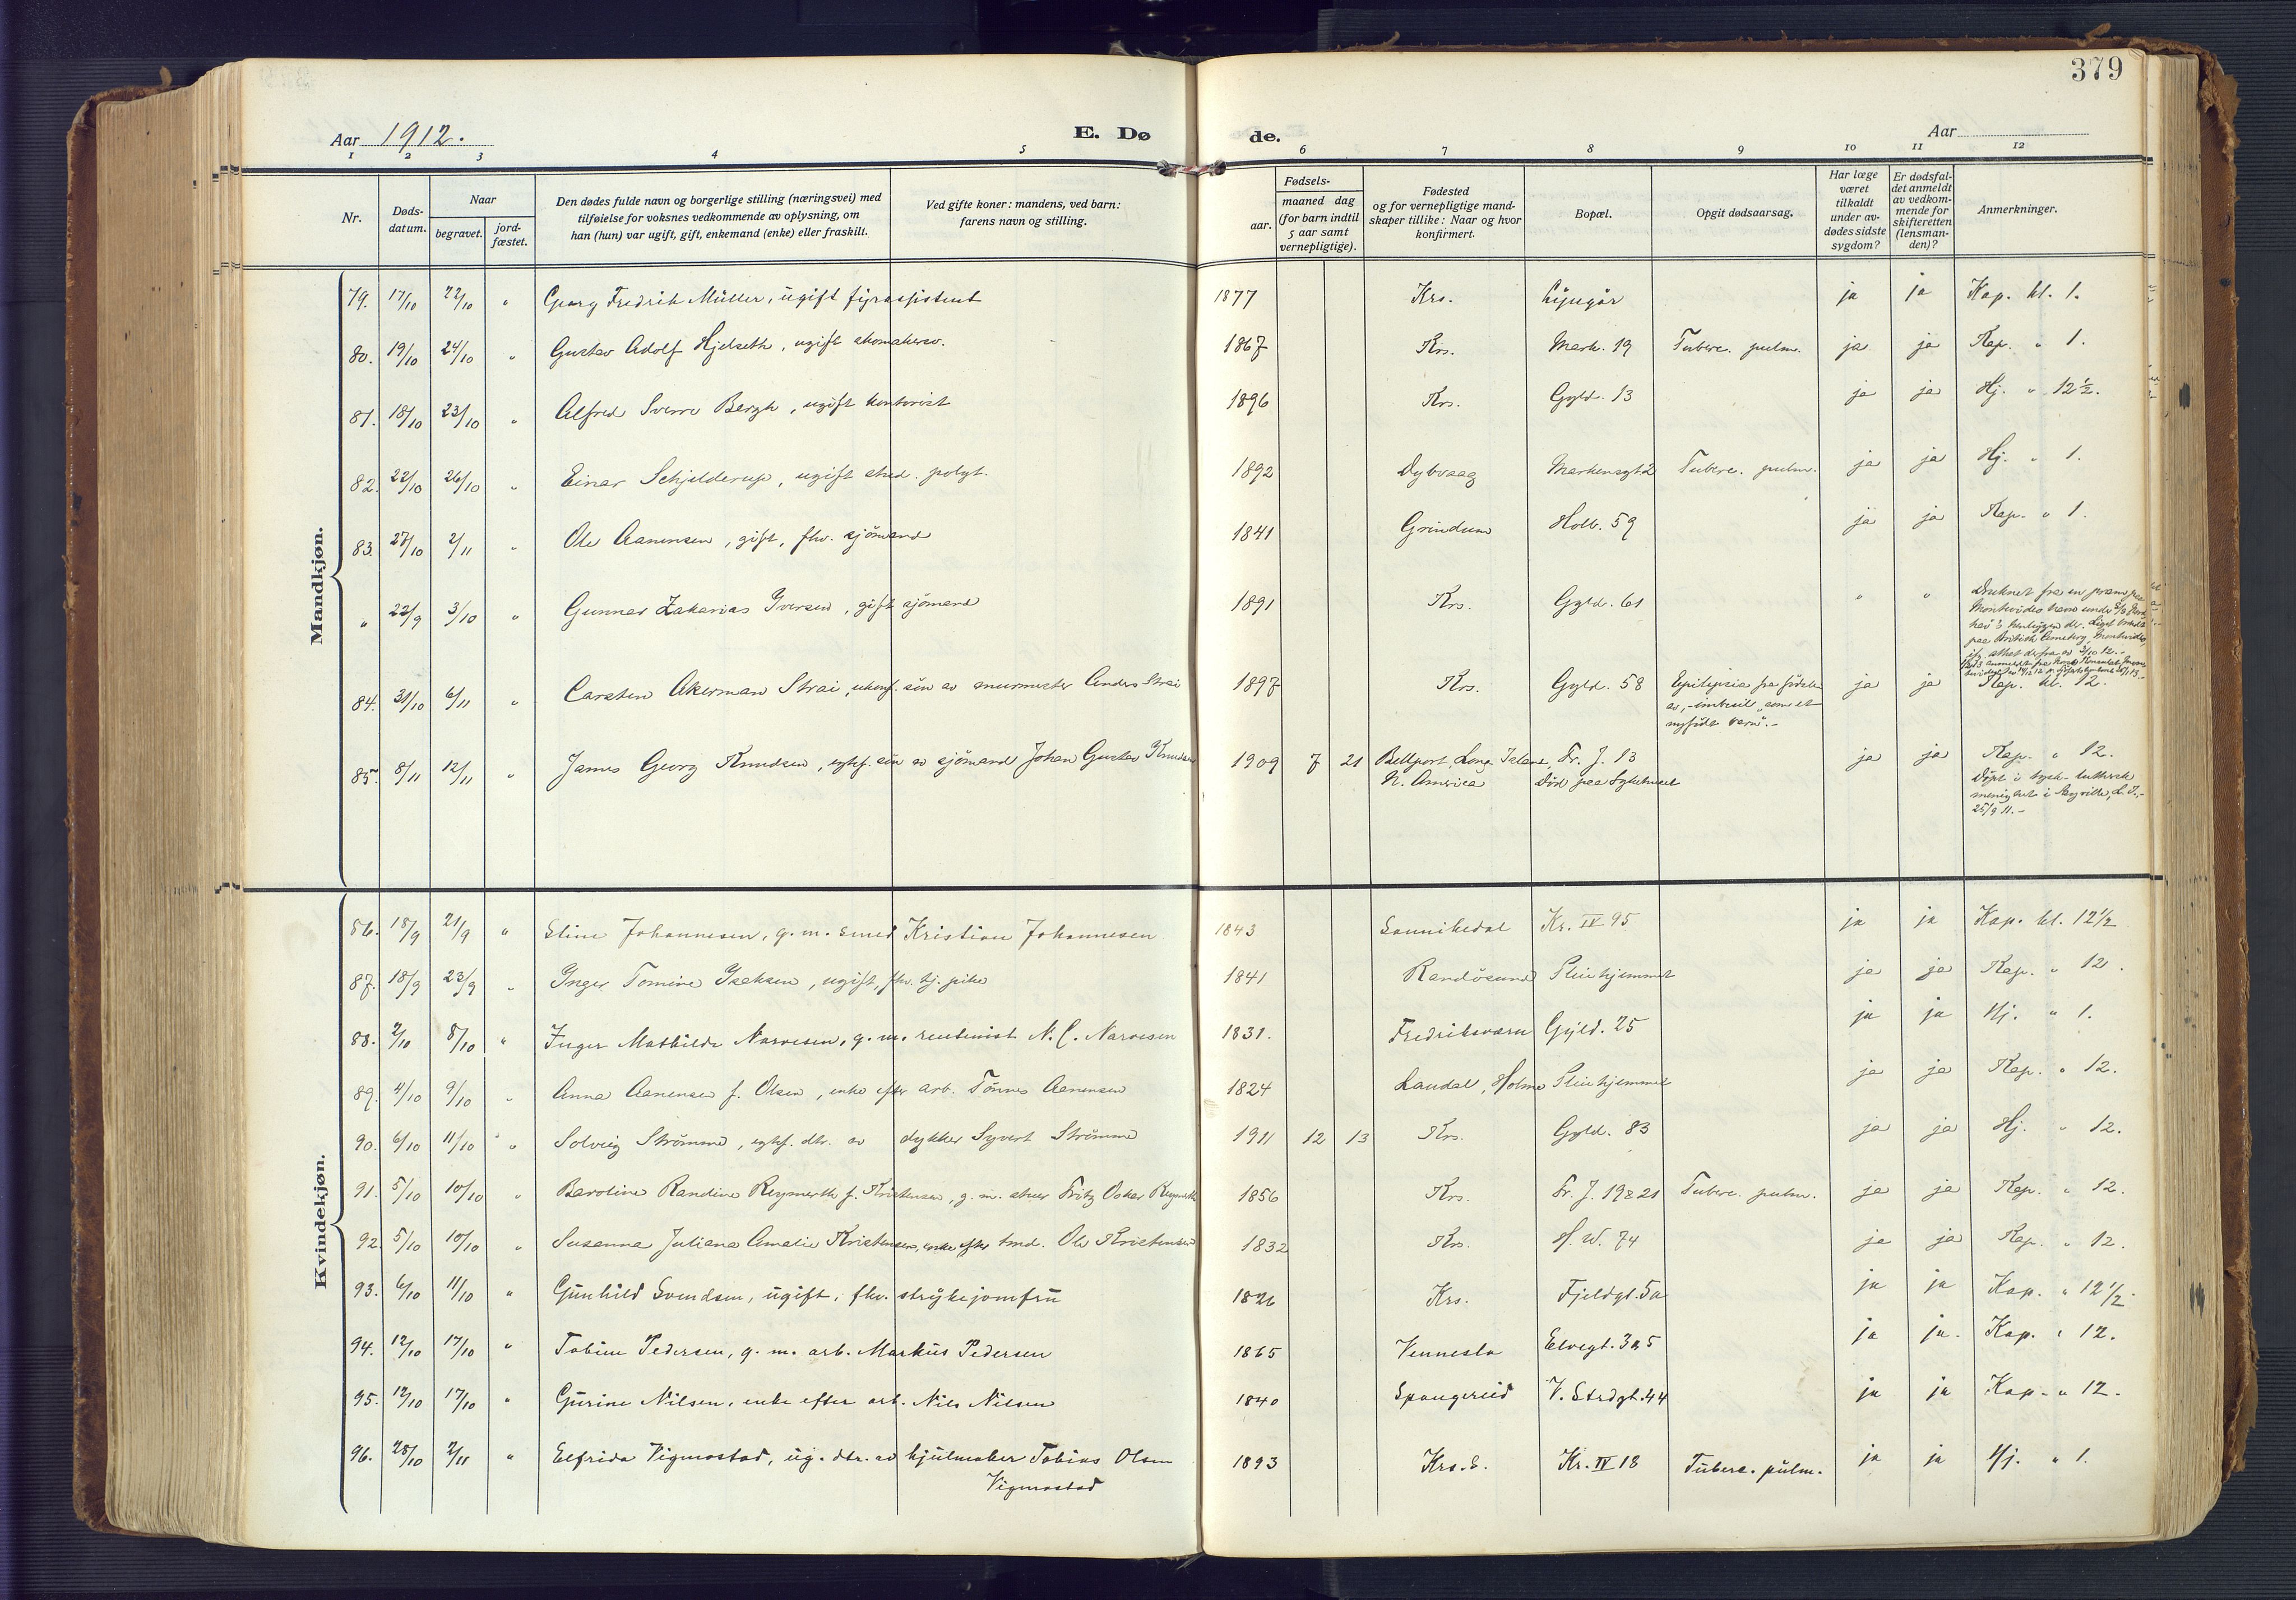 379
Aar 1912.
E. Dø
de.
Aar
1 2 3 4 5 6 7 8 9 10 11 12
Nr.
Døds-
datum.
Naar
begravet.
jord-
fæstet.
Den dødes fulde navn og borgerlige stilling (næringsvei) med
tilføielse for voksnes vedkommende av oplysning, om
han (hun) var ugift, gift, enkemand (enke) eller fraskilt.
Ved gifte koner: mandens, ved barn:
farens navn og stilling.
Fødsels-
aar.
maaned dag
(for barn indtil
5 aar samt
vernepligtige).
Fødested
og for vernepligtige mand-
skaper tillike: Naar og hvor
konfirmert.
Bopæl.
Opgit dødsaarsag.
Har læge
været
tilkaldt
under av-
dødes sidste
sygdom?
Er dødsfal-
det anmeldt
av vedkom-
mende for
skifteretten
(lensman-
den)?
Anmerkninger.
Mandkjøn.
79. 17/10 22/10 " Georg Fredrik Müller, ugift fyrassistent 1877 Krs. ja ja Kap. kl. 1.
80. 19/10 24/10 " Gustav Adolf Hjelseth, ugift skomakersv. 1867 Krs. Mark. 19 Tuberc. pulm. ja ja Kap. " 1.
81. 18/10 23/10 " Alfred Sverre Bergh, ugift kontorist 1896 Krs. Gyld. 13 ja ja Hj. " 12½.
82. 22/10 26/10 " Einar Schjelderup, ugift stud. polyt. 1892 Dybvaag Markensgt 2 Tuberc. pulm. ja ja Hj. " 1.
83. 27/10 2/11 " Ole Aanensen, gift, fhv. sjömand 1841 Grindum Holb. 59 ja ja Kap. " 1.
" 22/9 3/10 " Gunnar Zakarias Iversen, gift sjömand 1891 Krs. Gyld. 61 " " Druknet fra en pram paa
84. 31/10 6/11 " Carsten Akerman Strai, ukonf. sön av murmester Anders Strai 1897 Krs. Gyld. 58 Epilepsia fra födselen ja ja Kap. kl. 12.
av, - imbecil "som et
nyfödt barn". -
85. 8/11 12/11 " James Georg Knudsen, egtef. sön av sjömand Johan Gustav Knudsen 1909 7 21 Bellport, Long Island, Fr. J. 13 ja ja Kap. " 12.
N. America Död paa Sykehuset Döpt i tysk-luthersk
menighet i Sayville, L. I. -
25/9 11. -
Kvindekjøn.
86. 18/9 21/9 " Stine Johannesen, g. m. smed Kristian Johannesen 1843 Sannikedal Kr. IV 95 ja ja Kap. kl. 12½
87. 18/9 23/9 " Inger Tomine Isaksen, ugift, fhv. tj. pike 1841 Randösund Pleiehjemmet ja ja Kap. " 12.
88. 2/10 8/10 " Inger Mathilde Narvesen, g. m. rentenist N. C. Narvesen 1831. Fredriksværn Gyld. 25 ja ja Hj. " 1.
89. 4/10 9/10 " Anna Aanensen f. Olsen, enke efter arb. Tönnes Aanensen 1824 Laudal, Holme Pleiehjemmet ja ja Kap. " 12.
90. 6/10 11/10 " Solveig Strömme, egtef. dtr. av dykker Syvert Strömme 1911 12 13 Krs. Gyld. 83 ja ja Hj. " 12.
91. 5/10 10/10 " Baroline Randine Reymerth f. Kristensen, g. m. stuer Fritz Oskar Reymerth 1856 Krs. Fr. J. 19 & 21 Tuberc. pulm. ja ja Kap. " 12.
92. 5/10 10/10 " Susanna Juliana Amalie Kristensen, enke efter tmd. Ole Kristensen 1832 Krs. H. W. 74 ja ja Kap. " 12.
93. 6/10 11/10 " Gunhild Svendsen, ugift, fhv. strykejomfru 1826 Krs. Fjeldgt. 5a ja ja Kap. " 12½.
94. 12/10 17/10 " Tobine Pedersen, g. m. arb. Markus Pedersen 1865 Vennesla Elvegt. 3a5 ja ja. Kap. " 12.
95. 12/10 17/10 " Gurine Nilsen, enke efter arb. Nils Nilsen 1840 Spangereid V. Strdgt. 44 ja ja Kap. " 12.
96. 28/10 2/11 " Elfrida Vigmostad, ug. dtr. av hjulmaker Tobias Olsen 1893 Krs. S. Kr. IV 18 Tuberc. pulm. ja ja Hj. " 1.
Vigmostad